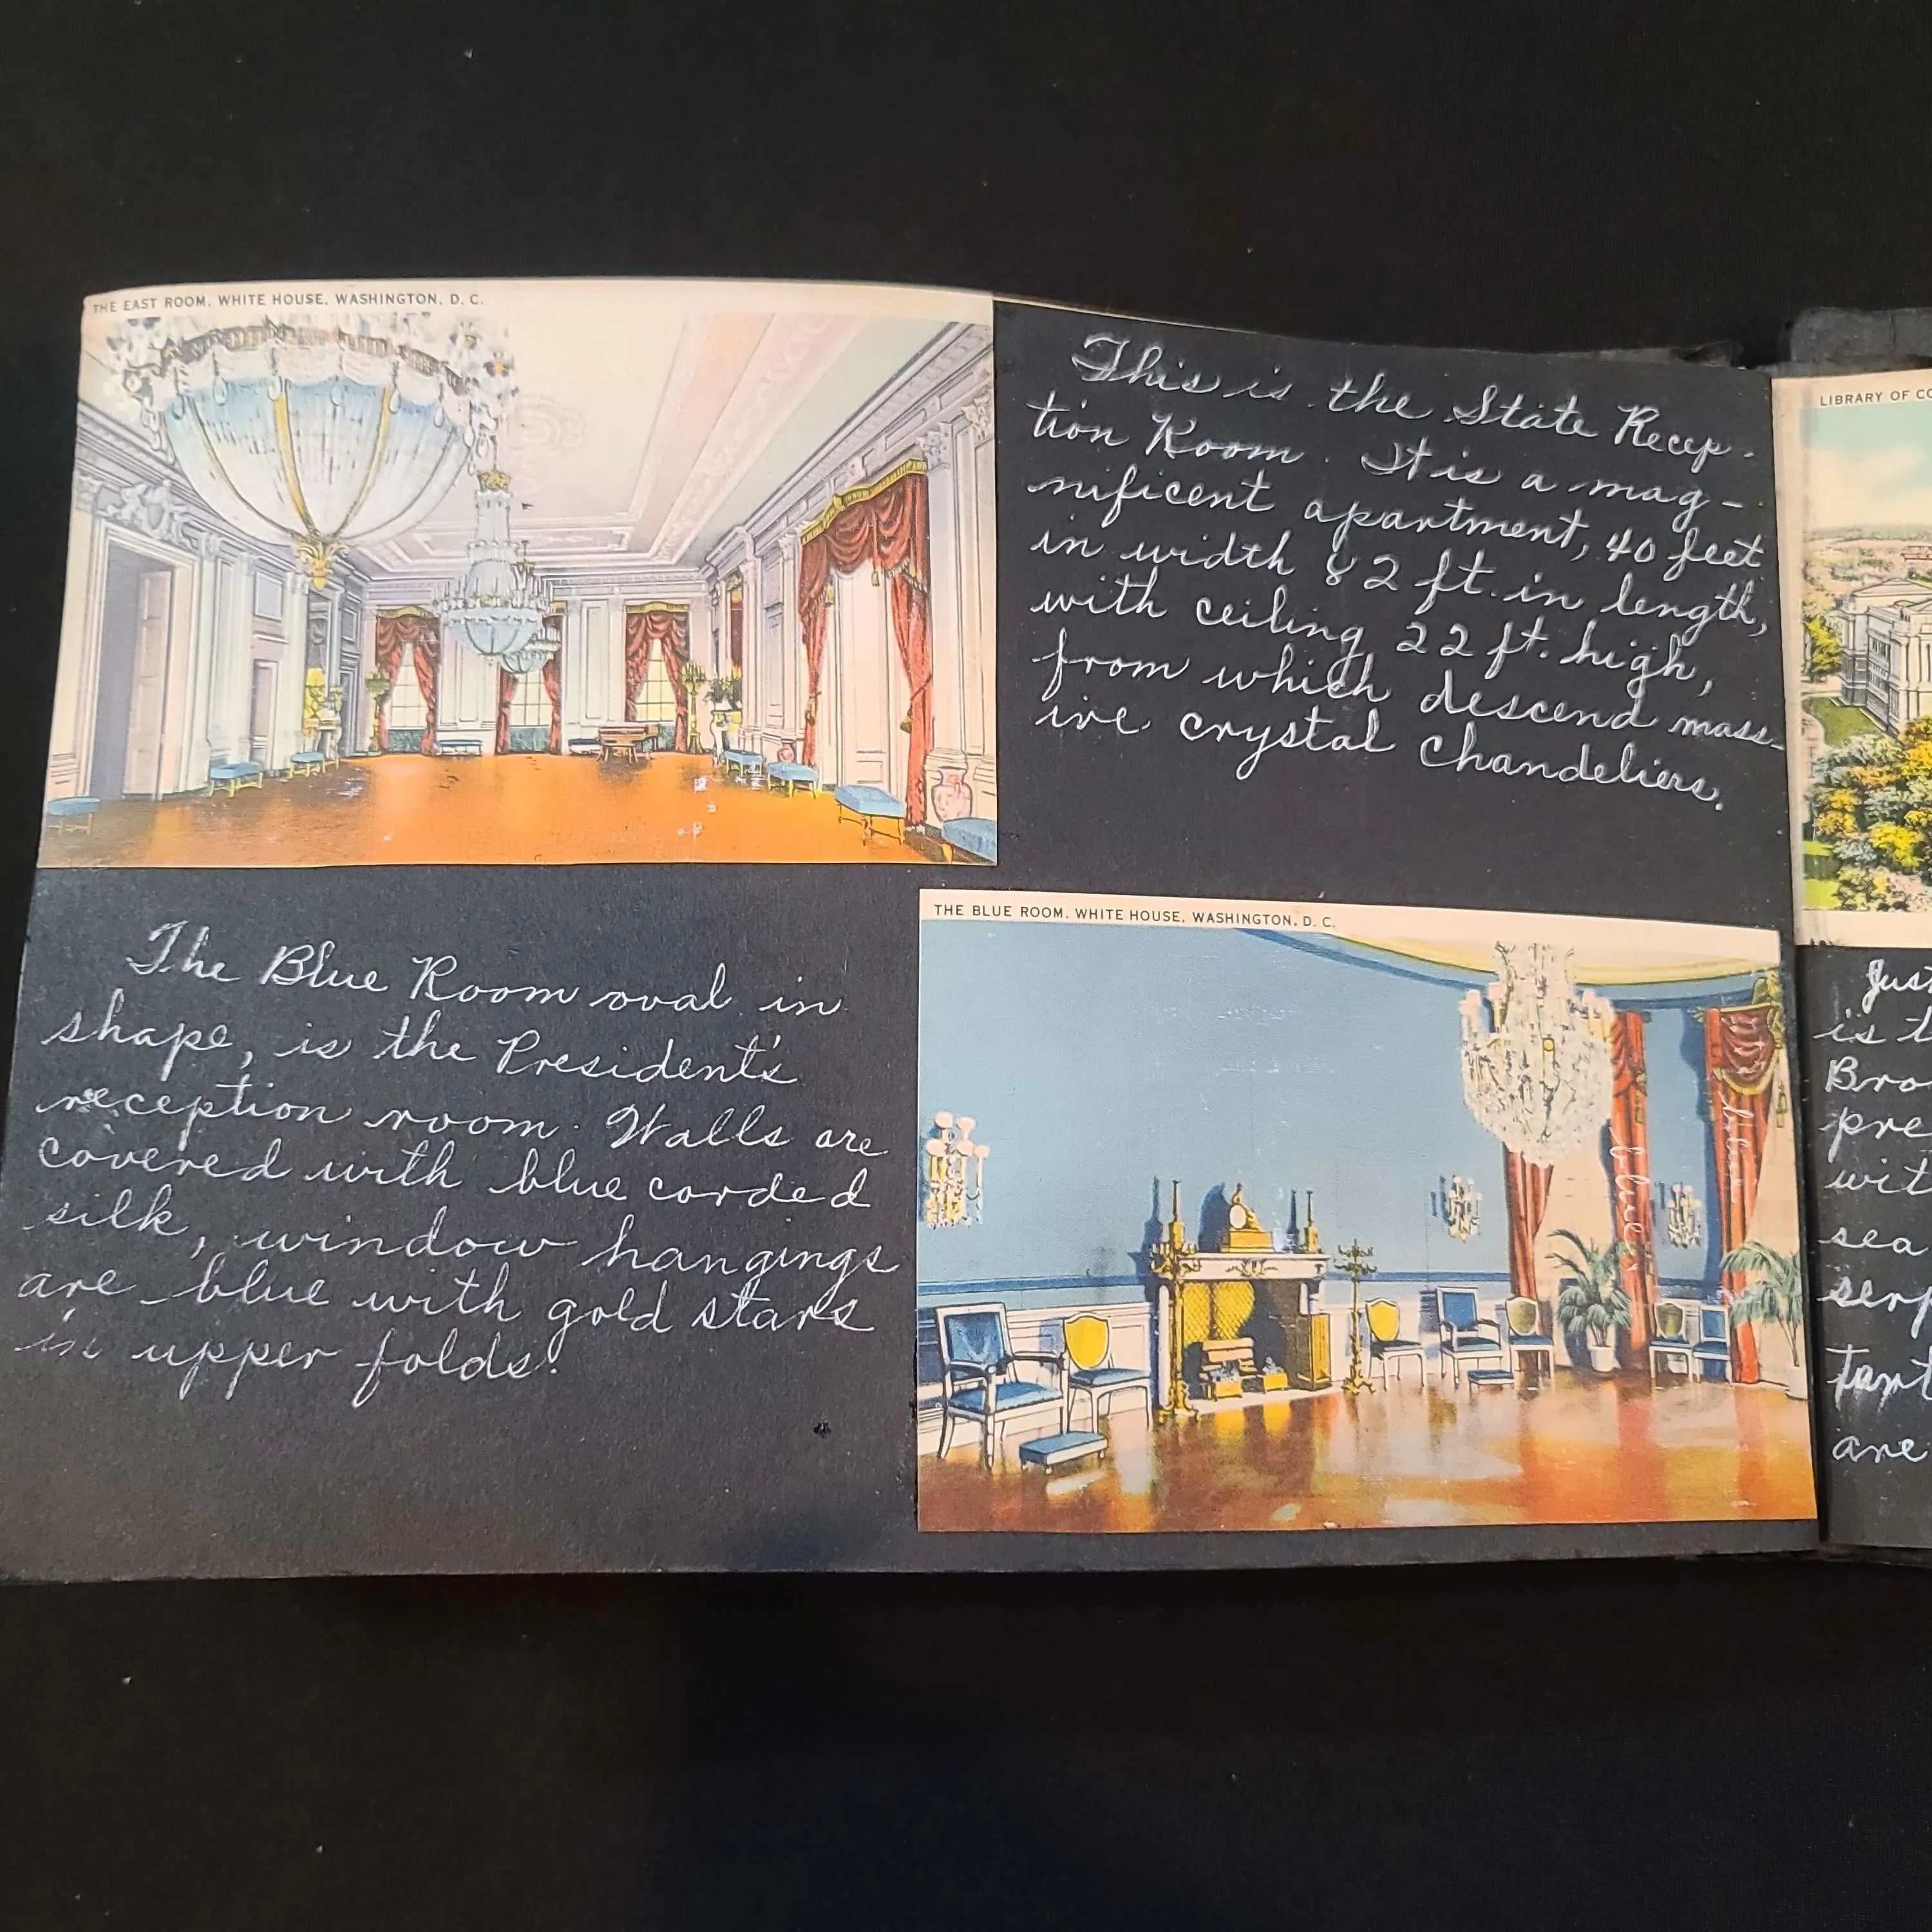 THE EAST ROOM. WHITE HOUSE, WASHINGTON, D. C.
This is the State Recep-
tion Room. It is a mag-
nificent apartment, 40 feet
in width 82 ft. in length,
with ceiling 22 ft. high,
from which descend mass-
ive crystal chandeliers.
The Blue Room oval in
shape, is the President's
reception room. Walls are
covered with blue corded
silk, window hangings
are blue with gold stars
in upper folds.
THE BLUE ROOM. WHITE HOUSE, WASHINGTON, D. C.
blue
LIBRARY OF CO
Just
is t
Bro
pre
wit
sea
serp
Tant
are